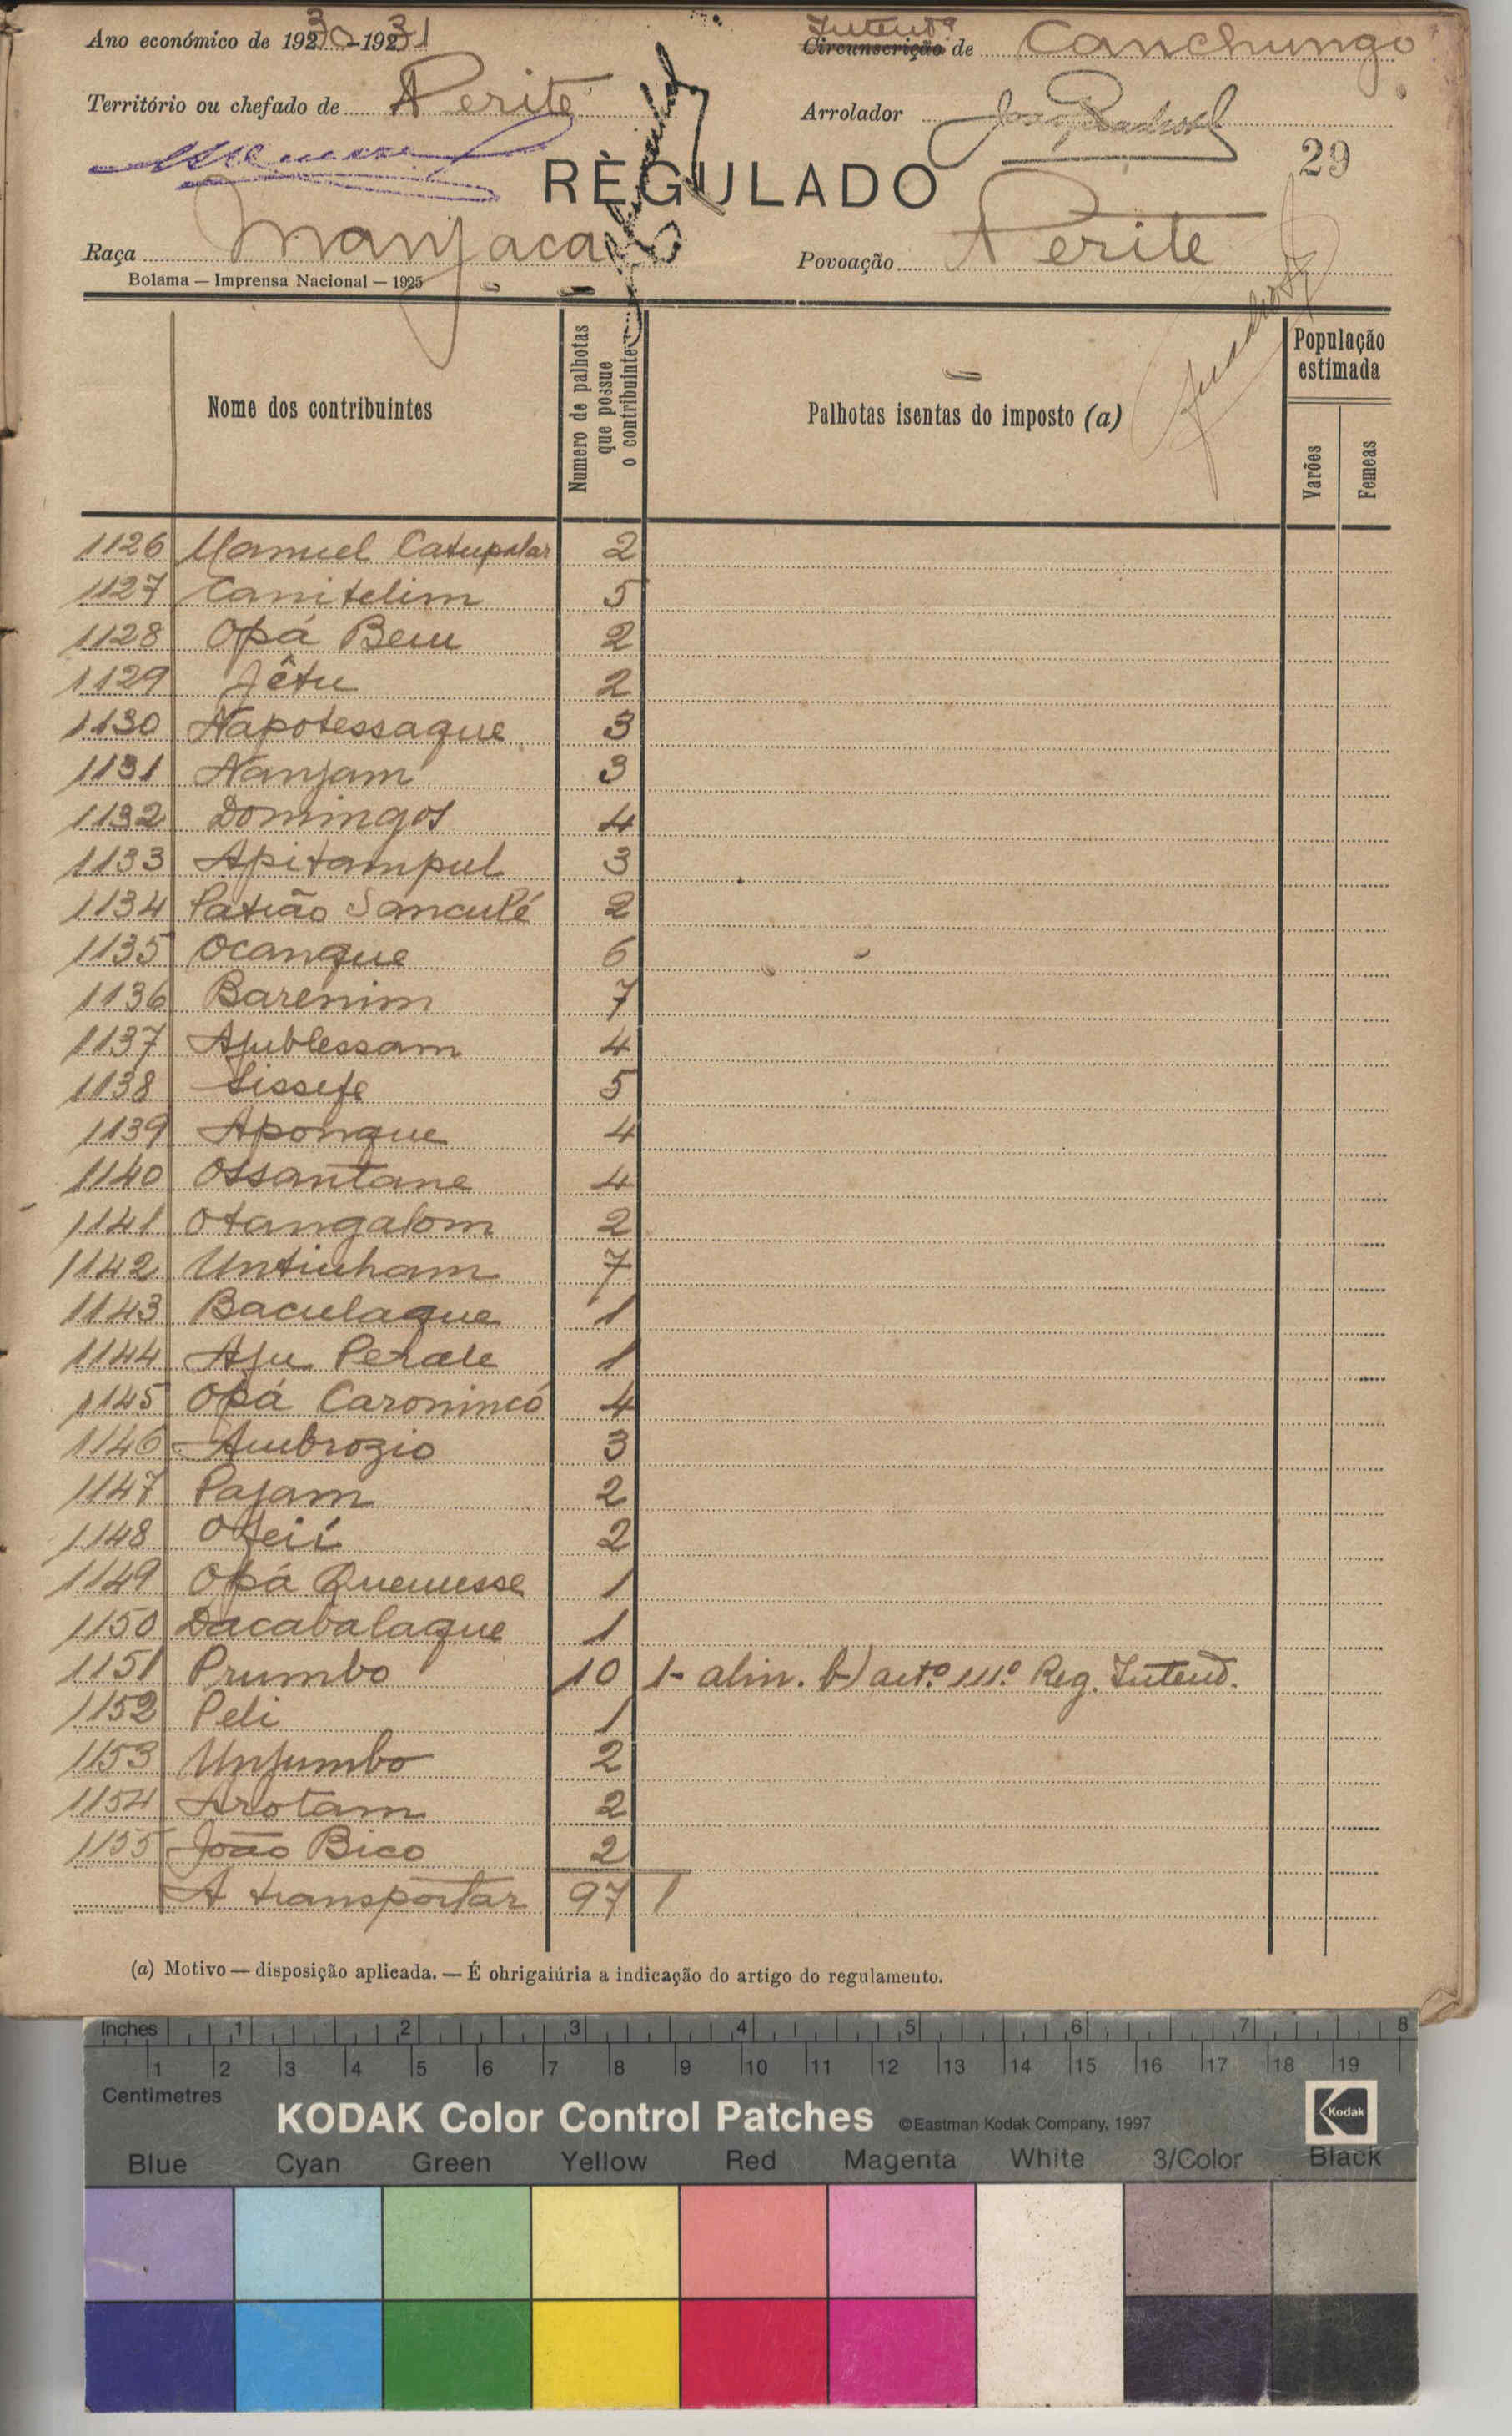 Ano económico de 1930-1931
Intendª
Circunscrição de Canchungo
Território ou chefado de Perite
Arrolador
29
RÈGULADO
Raça Manjaca
Povoação Perite
Bolama — Imprensa Nacional — 1925
Nome dos contribuintes
Numero de palhotas que possue o contribuinte
Palhotas isentas do imposto (a)
População estimada
Varões
Femeas
1126 Manuel Catupular 2
1127 Canitelim 5
1128 Opá Bem 2
1129 Jêtu 2
1130 Napotessaque 3
1131 Nanjam 3
1132 Domingos 4
1133 Apitampul 3
1134 Patrão Sanculé 2
1135 Ocanque 6
1136 Barenim 7
1137 Ajublessam 4
1138 Sissefe 5
1139 Aponque 4
1140 Ossantane 4
1141 Otangalom 2
1142 Untinham 7
1143 Baculaque 1
1144 Aju Perale 1
1145 Opá Caronincó 4
1146 Ambrozio 3
1147 Pajam 2
1148 2
1149 Opá Quemesse 1
1150 Dacabalaque 1
1151 Prumbo 10 1- alin. b) artº 111º Reg. Intend.
1152 Peli 1
1153 Unjumbo 2
1154 Arotam 2
1155 João Bico 2
A transportar 97 1
(a) Motivo — disposição aplicada. — É ohrigaiúria a indicação do artigo do regulamento.
Inches 1 2 3 4 5 6 7 8
1 2 3 4 5 6 7 8 9 10 11 12 13 14 15 16 17 18 19
Centimetres
KODAK Color Control Patches ©Eastman Kodak Company, 1997 Kodak
Blue Cyan Green Yellow Red Magenta White 3/Color Black